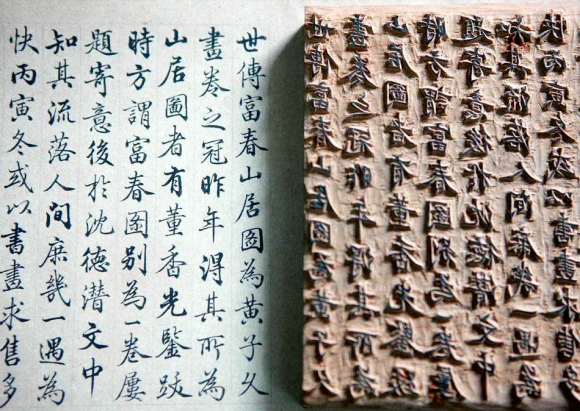 世傳富春山居圖為黃子久
畫卷之冠昨年得其所為
山居圖者有董香光鑒跋
時方謂富春圖别為一卷屢
題寄意後於沈德潛文中
知其流落人間庶幾一遇為
快丙寅冬或以書畫求售多
世傳富春山居圖為黃子久
畫卷之冠昨年得其所為
山居圖者有董香光鑒跋
時方謂富春圖别為一卷屢
題寄意後於沈德潛文中
知其流落人間庶幾一遇為
快丙寅冬或以書畫求售多